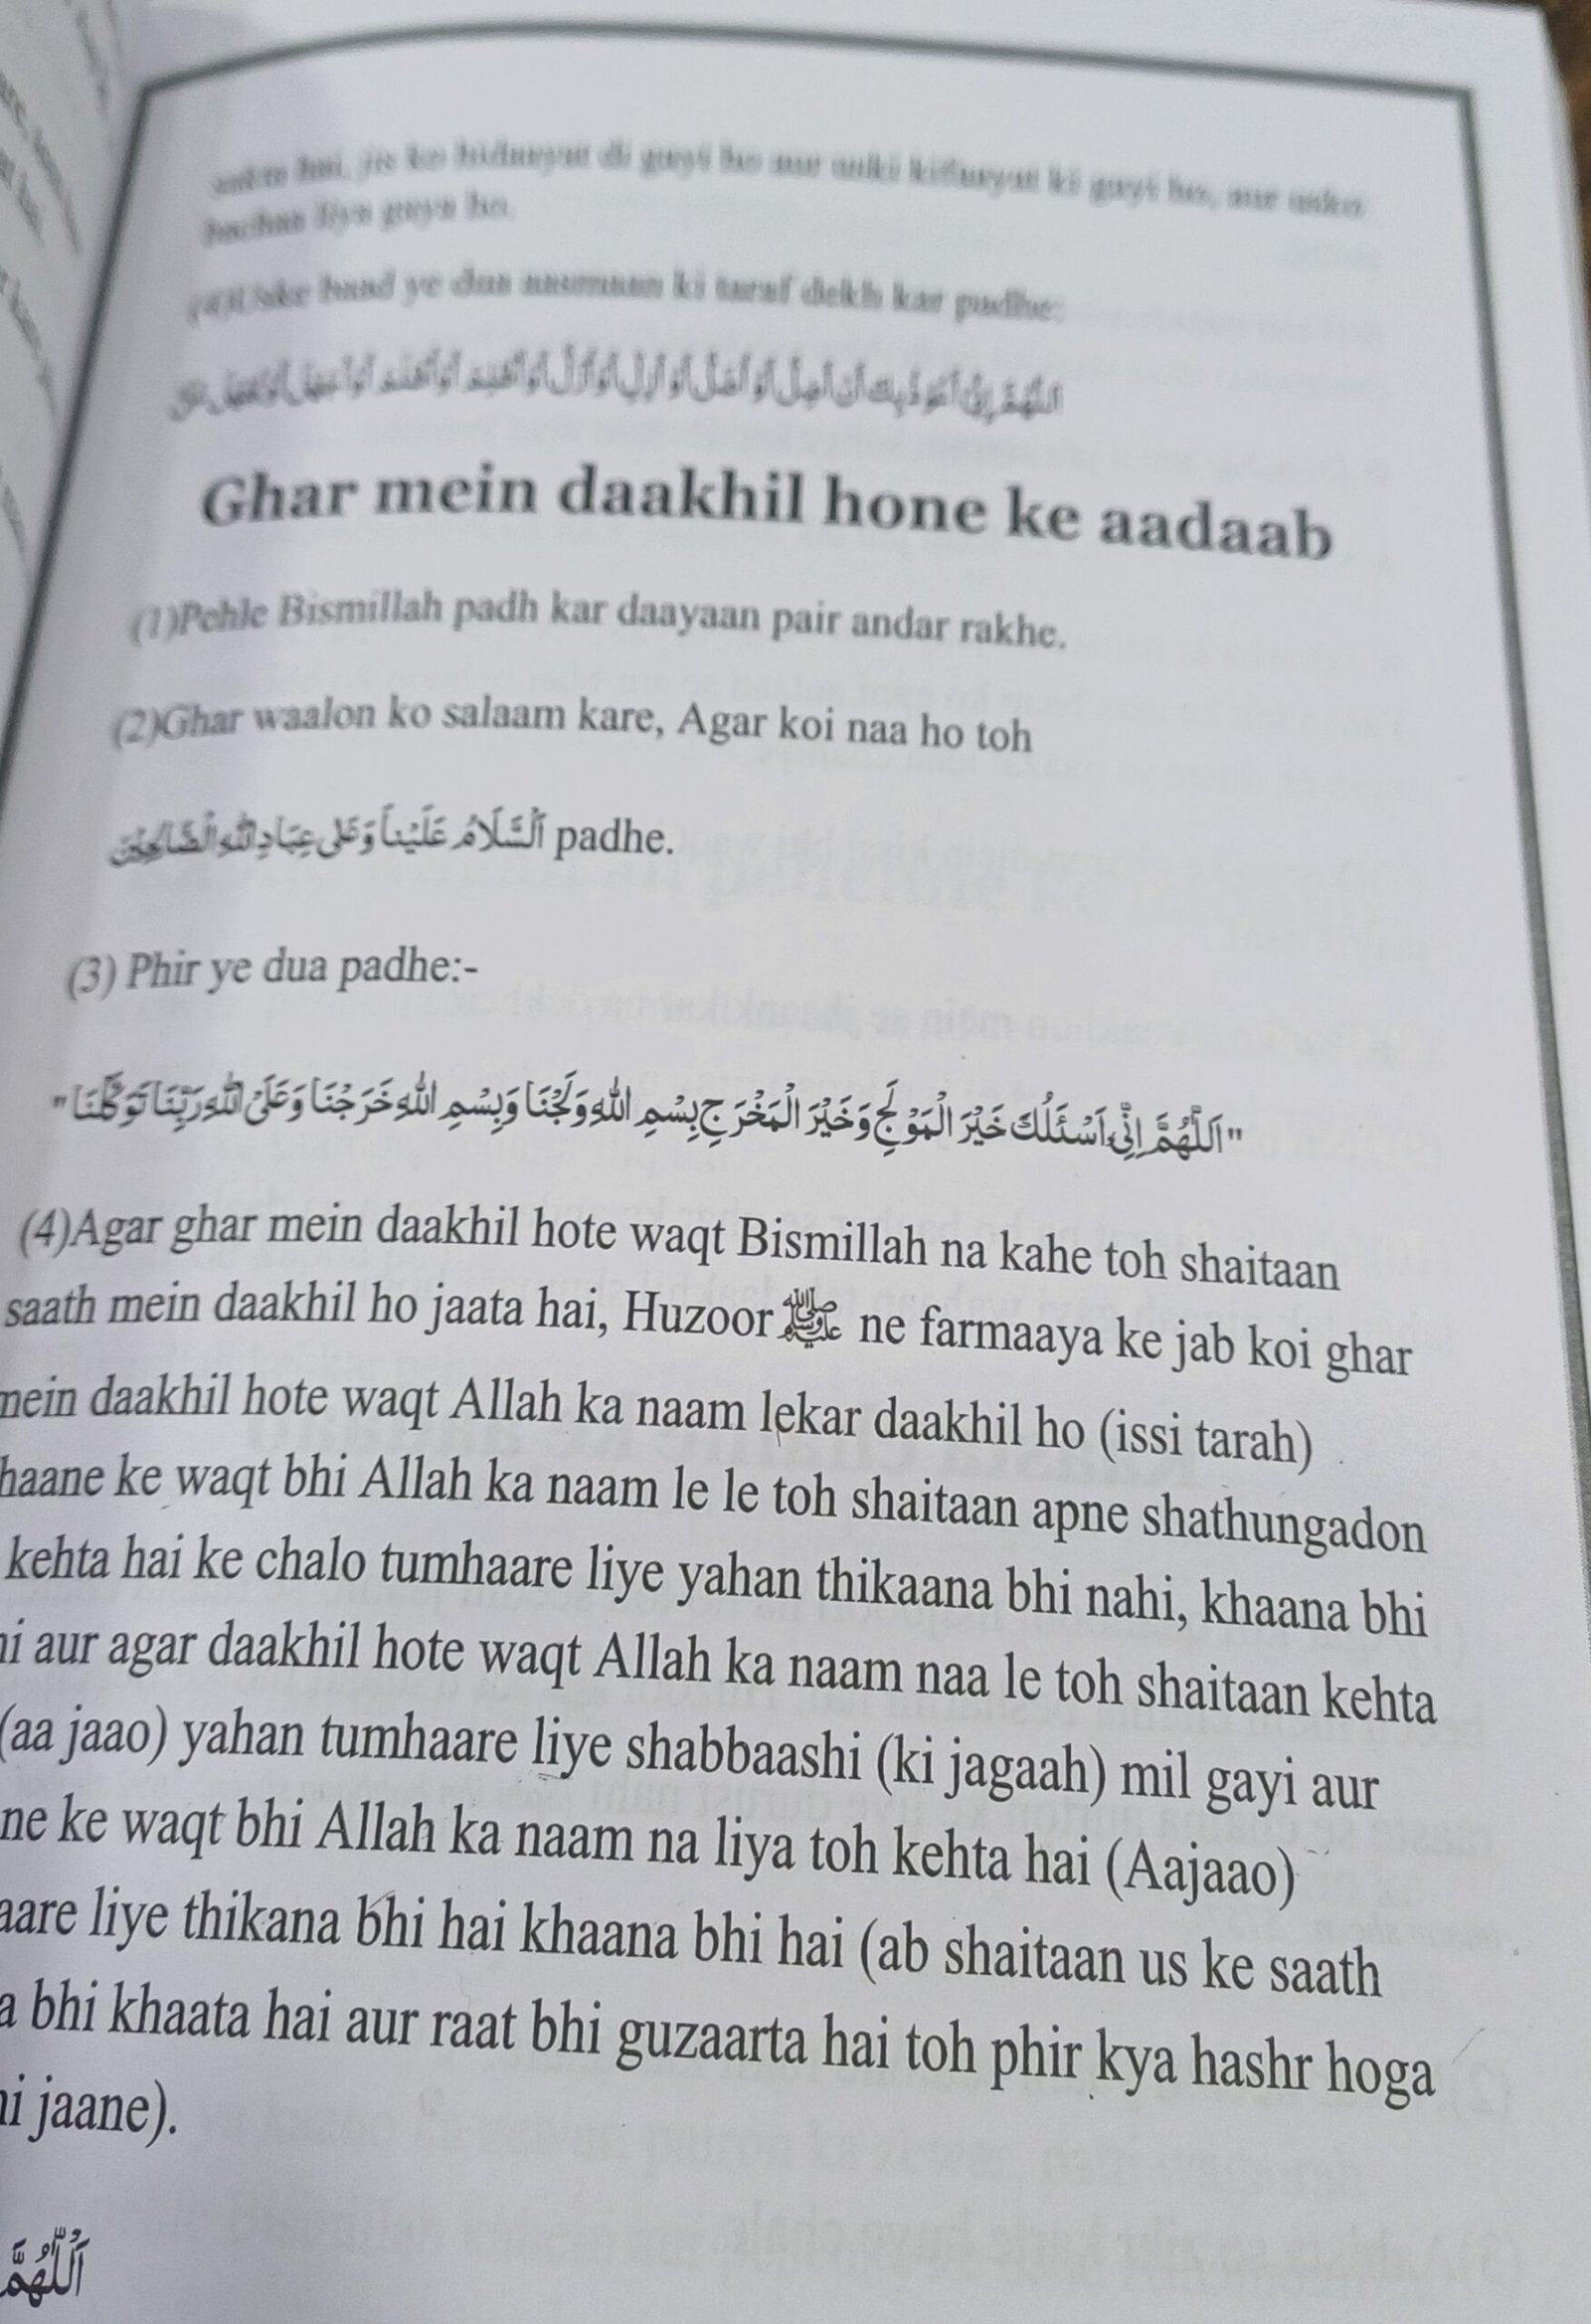 hai, jis ko hidaayat di gayi ho aur uski kifaayat ki gayi ho, aur usko
bachaa liya gaya ho.
(4)Uske baad ye dua aasmaan ki taraf dekh kar padhe:
Ghar mein daakhil hone ke aadaab
(1)Pehle Bismillah padh kar daayaan pair andar rakhe.
(2)Ghar waalon ko salaam kare, Agar koi naa ho toh
اَلسَّلَامُ عَلَيْنَا وَعَلٰى عِبَادِ اللهِ الصَّالِحِيْنَ padhe.
(3) Phir ye dua padhe:-
"اَللّٰهُمَّ اِنِّىْ اَسْئَلُكَ خَيْرَ الْمَوْلَجِ وَخَيْرَ الْمَخْرَجِ بِسْمِ اللهِ وَلَجْنَا وَبِسْمِ اللهِ خَرَجْنَا وَعَلَى اللهِ رَبِّنَا تَوَكَّلْنَا"
(4)Agar ghar mein daakhil hote waqt Bismillah na kahe toh shaitaan
saath mein daakhil ho jaata hai, Huzoor ﷺ ne farmaaya ke jab koi ghar
mein daakhil hote waqt Allah ka naam lekar daakhil ho (issi tarah)
haane ke waqt bhi Allah ka naam le le toh shaitaan apne shathungadon
kehta hai ke chalo tumhaare liye yahan thikaana bhi nahi, khaana bhi
hi aur agar daakhil hote waqt Allah ka naam naa le toh shaitaan kehta
(aa jaao) yahan tumhaare liye shabbaashi (ki jagaah) mil gayi aur
ne ke waqt bhi Allah ka naam na liya toh kehta hai (Aajaao)
aare liye thikana bhi hai khaana bhi hai (ab shaitaan us ke saath
a bhi khaata hai aur raat bhi guzaarta hai toh phir kya hashr hoga
hi jaane).
اَللّٰهُمَّ